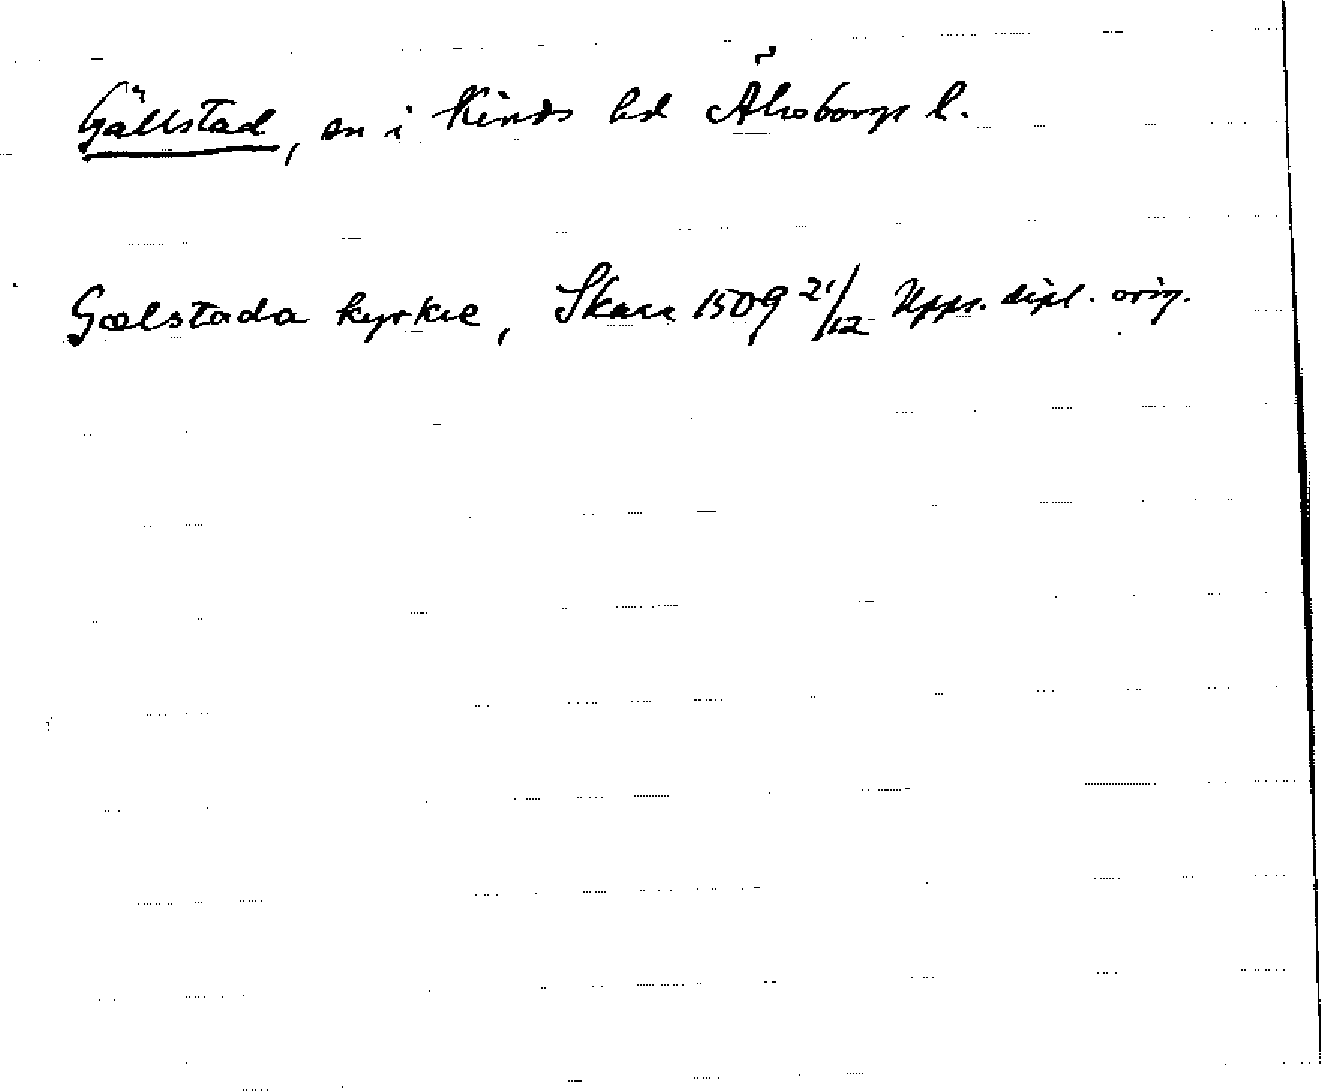 Gällstad, sn i Kinds hd Älvsborgs l.
Gælstada kyrkæ, Skara 1509 21/12 Upps. dipl. orig.